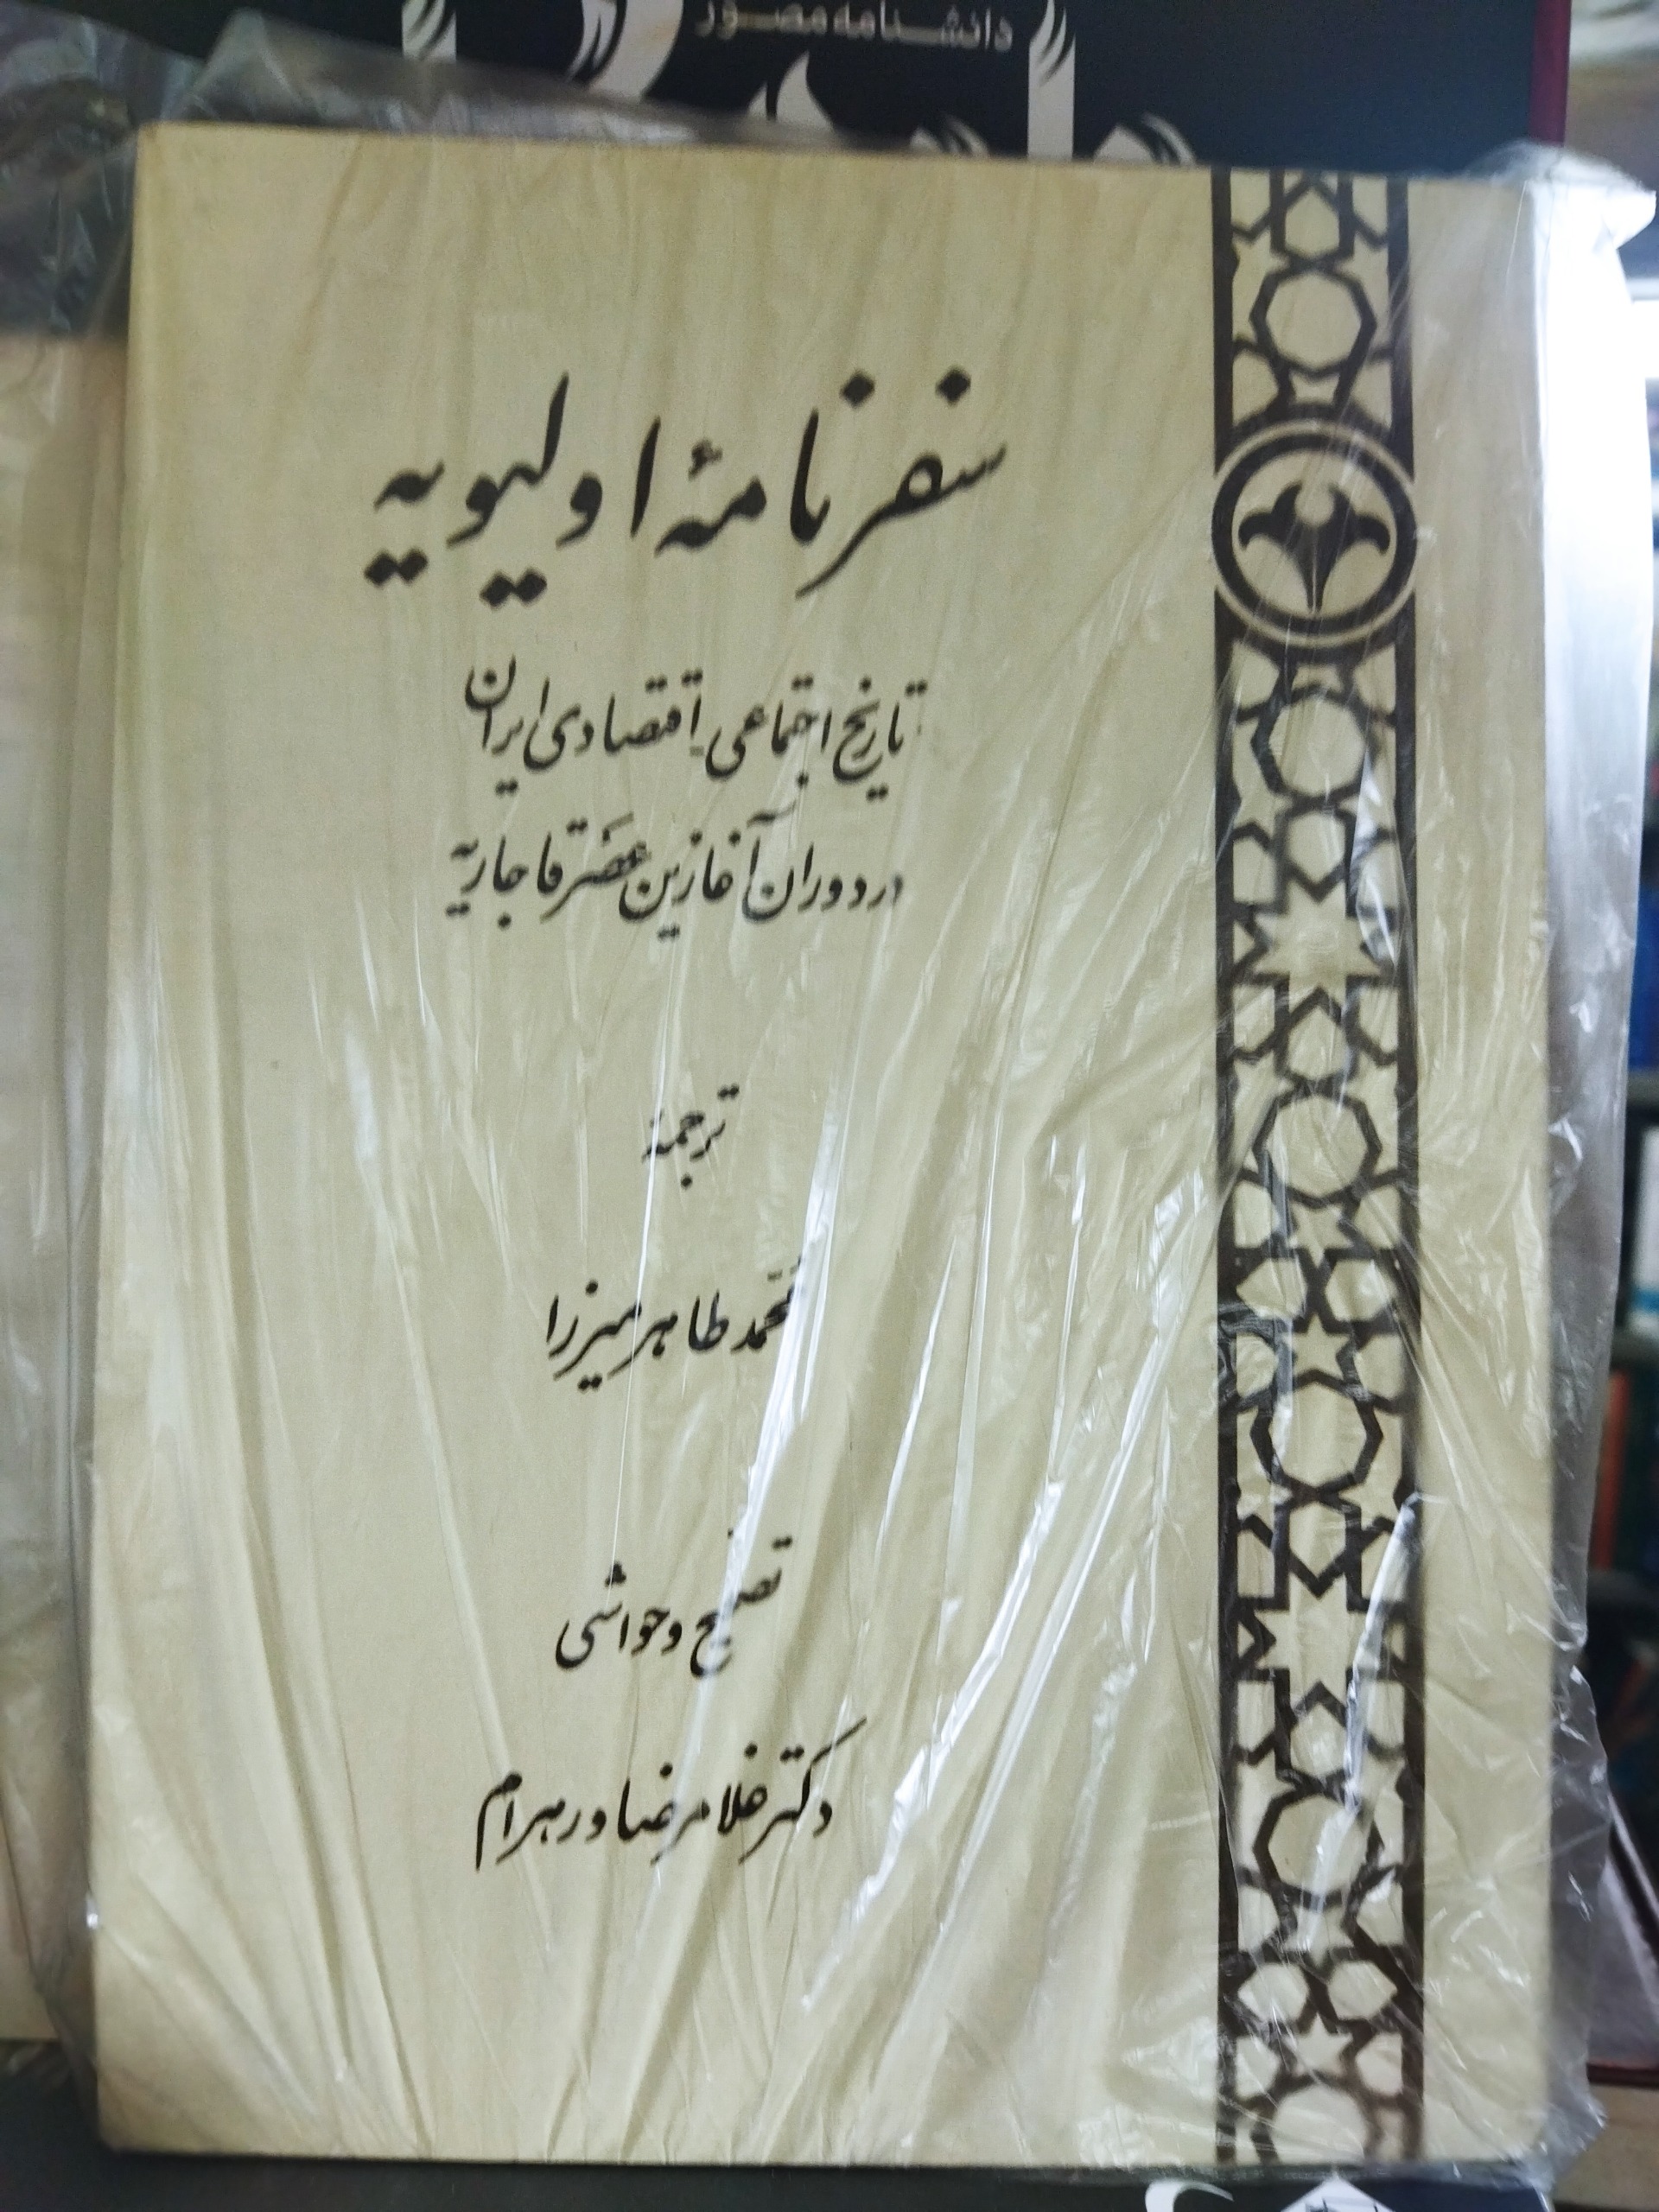 دانشنامه مصور
سفرنامهٔ اولیویه
تاریخ اجتماعی - اقتصادی ایران
در دوران آغازین عصر قاجاریه
ترجمهٔ
محمد طاهر میرزا
تصحیح و حواشی
دکتر غلامرضا ورهرام